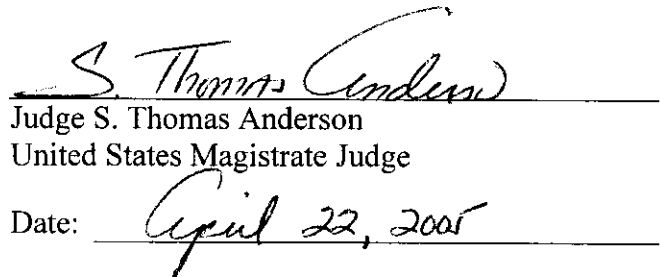 S. Thomas Anderson
Judge S. Thomas Anderson
United States Magistrate Judge
Date: April 22, 2005